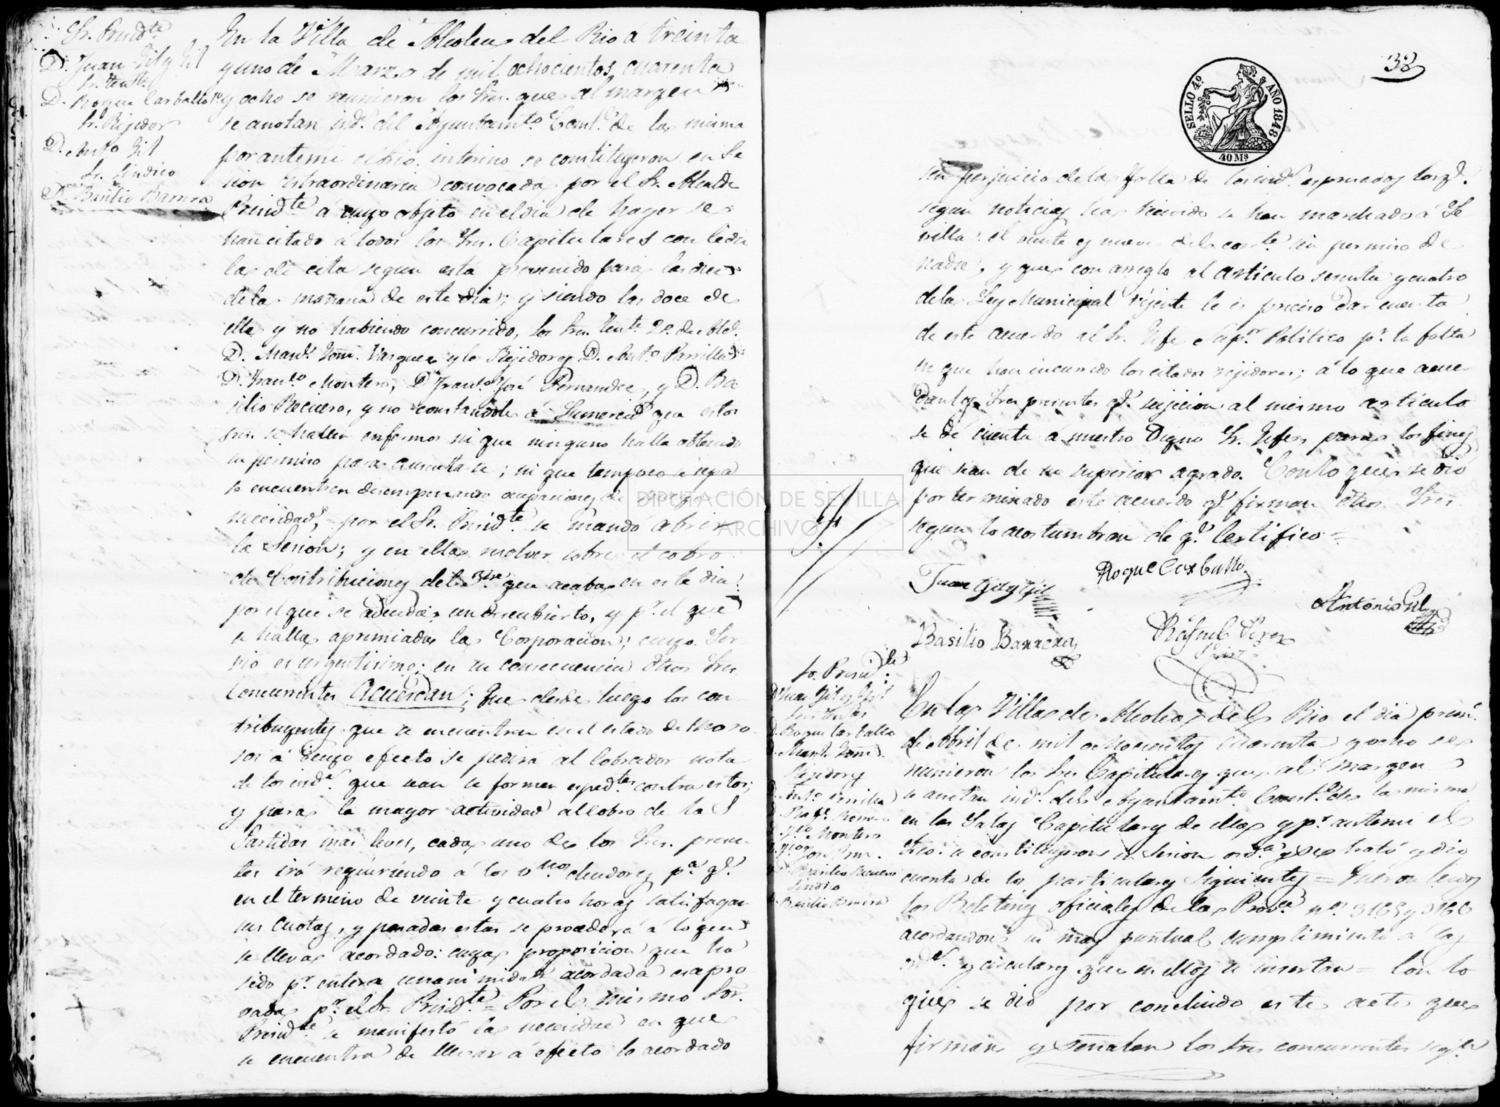 Sr. Presidte
D. Juan Gil y Gil
Sr. Tente
D. Roque Carballo
Sr. Rejidor
D. Anto Gil
Sr. Sindico
D. Basilio Barrera
En la Villa de Alcolea del Rio a treinta
y uno de Marzo de mil ochocientos cuarenta
y ocho se reunieron los Sres. que al margen
se anotan inds. del Ayuntamto Constl. de la misma
por ante mi el Srio. interino se constituyeron en se
sion extraordinaria convocada por el Sr. Alcalde
Presidte a cuyo objeto en el dia de hayer se
han citado a todos los Sres. Capitulares con cedu
las de cita segun está prevenido para las diez
de la mañana de este dia; y siendo las doce de
ella y no habiendo concurrido, los Sres. Tente 2º de Alce.
D. Manl. Vazquez y los Rejidores D. Anto Parrilla
D. Franco Montero, D. Franco José Fernandez, y D. Ba
silio Reciero, y no constandole á Su merced que estos
Sres. se hallen enfermos ni que ninguno halla obtenido
su permiso para ausentarse; ni que tampoco se sepa
se encuentren desempeñando ocupaciones de
necesidad, por el Sr. Presidte se mandó abrir
la Sesion; y en ella resolver sobre el cobro
de Contribuciones del 3tre que acaba en este dia
por el que se adeuda un descubierto, y pr. el que
se halla apremiada la Corporacion; cuyo Ser
vicio es urgentisimo; en su consecuencia dichos Sres.
Concurrentes Acuerdan; Que desde luego los con
tribuyentes que se encuentren en el estado de Moro
sos a cuyo efecto se pedirá al cobrador nota
de los inds. que van se formen espedtes contra estos;
y para la mayor actividad al cobro de las
partidas mas leves, cada uno de los Sres. presen
tes irá requiriendo á los deudores pa. qe.
en el termino de veinte y cuatro horas satisfagan
sus cuotas, y pasadas estas se procederá a lo que
se lleva acordado: cuya proposicion que ha
sido pr. entera unanimidad acordada es apro
vada pr. el Sr. Presidte = Por el mismo Sor.
Presidte se manifestó la necesidad en que
se encuentra de llevar á efecto lo acordado
32
SELLO 4º AÑO 1848
40 Ms
sin perjuicio de la falta de los inds. espresados los qe.
segun noticias has tenido se han marchado á Se
villa el veinte y nueve del corrte sin permiso de
nadie, y que con arreglo al articulo sesenta y cuatro
de la Ley Municipal vijente le es preciso dar cuenta
de este acuerdo al Sr. Jefe Supor Politico pr. la falta
en que han incurrido los citados rejidores; á lo que acuer
dan los Sres presentes qe. sujecion al mismo articulo
se dé cuenta a nuestro Digno Sr. Jefe para los fines
que sean de su superior agrado. Con lo que se dió
por terminado este acuerdo qe. firman dhos. Sres.
segun lo acostumbran de qe. Certifico =
Juan Gil y Gil
Roque Carballo
Antonio Gil
Basilio Barrera
Rafael
So. Presidte
Juan Gil y Gil
Roque Carballo
Rejidores
D. Basilio Reciero
Sindico
Basilio Barrera
En la Villa de Alcolea del Rio el dia primo.
de Abril de mil ochocientos cuarenta y ocho se
reunieron los Sres Capitulares que al margen
se anotan inds. del Ayuntamto. Constl. de la misma
en las Salas Capitulares de ella y pr. ante mi el
Srio. se constituyeron en Sesion orda. y se trató y dió
cuenta de los particulares Siguientes = Fueron leidos
los Boletines oficiales de la Prova. nos. 3165 y 3166
acordandose su mas puntual cumplimiento a las
ords. y circulares que en ellos se insertan = Con lo
que se dió por concluido este acto que
firman y señalan los Sres concurrentes segun
DIPUTACIÓN DE SEVILLA
ARCHIVO